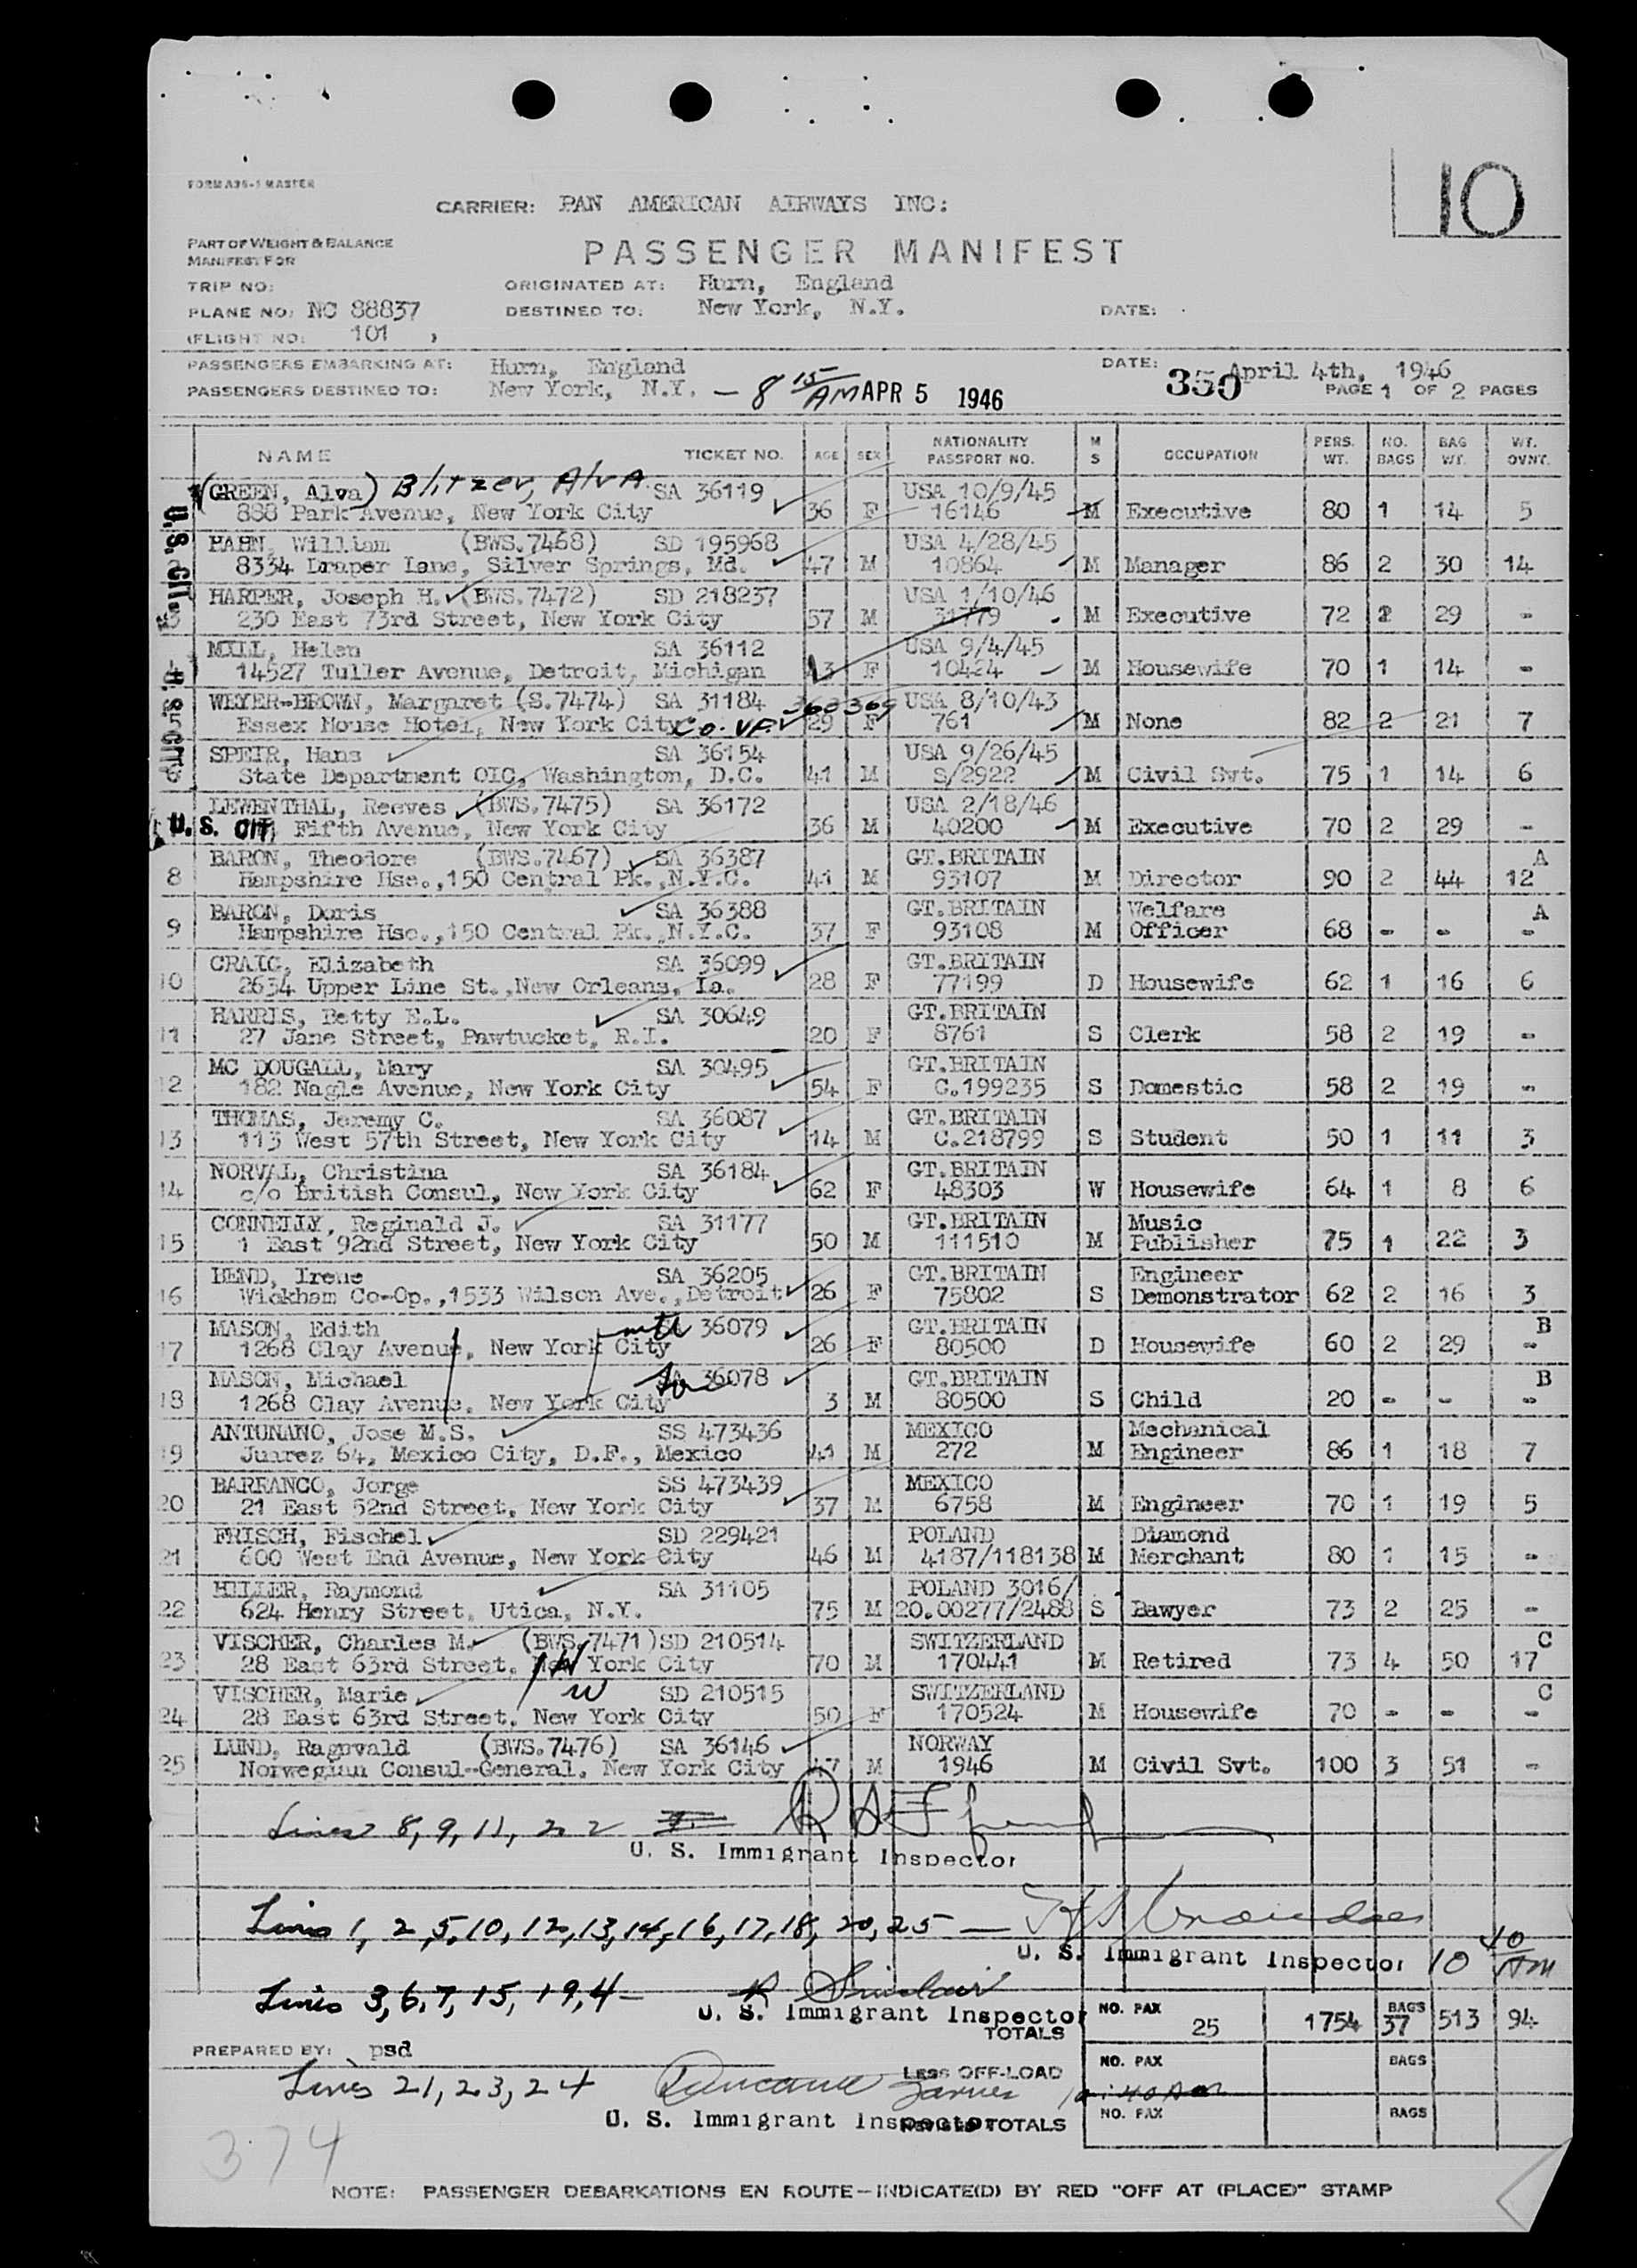 10
FORM A36-1 MASTER
CARRIER: PAN AMERICAN AIRWAYS INC:
PART OF WEIGHT & BALANCE
MANIFEST FOR
PASSENGER MANIFEST
TRIP NO: ORIGINATED AT: Hurn, England
PLANE NO: NC 88837 DESTINED TO: New York, N.Y. DATE:
(FLIGHT NO: 101 )
PASSENGERS EMBARKING AT: Hurn, England DATE: April 4th, 1946
PASSENGERS DESTINED TO: New York, N.Y. — 8 15 AM APR 5 1946 350 PAGE 1 OF 2 PAGES
NAME TICKET NO. AGE SEX NATIONALITY PASSPORT NO. M S OCCUPATION PERS. WT. NO. BAGS BAG WT. WT. OVNT.
(GREEN, Alva) Blitzer, Alva SA 36119 USA 10/9/45
888 Park Avenue, New York City 36 F 16146 M Executive 80 1 14 5
HAHN, William (BWS.7468) SD 195968 USA 4/28/45
8334 Draper Lane, Silver Springs, Md. 47 M 10864 M Manager 86 2 30 14
HARPER, Joseph H. (BWS.7472) SD 218237 USA 1/10/46
230 East 73rd Street, New York City 57 M 31779 M Executive 72 2 29 -
MILL, Helen SA 36112 USA 9/4/45
14527 Tuller Avenue, Detroit, Michigan 43 F 10424 M Housewife 70 1 14 -
WEYER-BROWN, Margaret (S.7474) SA 31184 368369 USA 8/10/43
Essex House Hotel, New York City Co. VF. 29 F 761 M None 82 2 21 7
SPEIR, Hans SA 36154 USA 9/26/45
State Department OIC, Washington, D.C. 41 M S/2922 M Civil Svt. 75 1 14 6
LEWENTHAL, Reeves (BWS.7475) SA 36172 USA 2/18/46
U.S. CIT. Fifth Avenue, New York City 36 M 40200 M Executive 70 2 29 -
BARON, Theodore (BWS.7467) SA 36387 GT.BRITAIN A
8 Hampshire Hse.,150 Central Pk.,N.Y.C. 41 M 93107 M Director 90 2 44 12
BARON, Doris SA 36388 GT.BRITAIN Welfare A
9 Hampshire Hse.,150 Central Pk.,N.Y.C. 37 F 93108 M Officer 68 - - -
CRAIG, Elizabeth SA 36099 GT.BRITAIN
10 2634 Upper Line St.,New Orleans, La. 28 F 77199 D Housewife 62 1 16 6
HARRIS, Betty E.L. SA 30649 GT.BRITAIN
11 27 Jane Street, Pawtucket, R.I. 20 F 8761 S Clerk 58 2 19 -
MC DOUGALL, Mary SA 30495 GT.BRITAIN
12 182 Nagle Avenue, New York City 54 F C.199235 S Domestic 58 2 19 -
THOMAS, Jeremy C. SA 36087 GT.BRITAIN
13 113 West 57th Street, New York City 14 M C.218799 S Student 50 1 11 3
NORVAL, Christina SA 36184 GT.BRITAIN
14 c/o British Consul, New York City 62 F 48303 W Housewife 64 1 8 6
CONNELLY, Reginald J. SA 31177 GT.BRITAIN Music
15 1 East 92nd Street, New York City 50 M 111510 M Publisher 75 1 22 3
BEND, Irene SA 36205 GT.BRITAIN Engineer
16 Wickham Co-Op.,1533 Wilson Ave.,Detroit 26 F 75802 S Demonstrator 62 2 16 3
MASON, Edith 36079 GT.BRITAIN B
17 1268 Clay Avenue, New York City 26 F 80500 D Housewife 60 2 29 -
MASON, Michael 36078 GT.BRITAIN B
18 1268 Clay Avenue, New York City 3 M 80500 S Child 20 - - -
ANTUNANO, Jose M.S. SS 473436 MEXICO Mechanical
19 Juarez 64, Mexico City, D.F., Mexico 41 M 272 M Engineer 86 1 18 7
BARRANCO, Jorge SS 473439 MEXICO
20 21 East 52nd Street, New York City 37 M 6758 M Engineer 70 1 19 5
FRISCH, Fischel SD 229421 POLAND Diamond
21 600 West End Avenue, New York City 46 M 4187/118138 M Merchant 80 1 15 -
HILLER, Raymond SA 31105 POLAND 3016/
22 624 Henry Street, Utica, N.Y. 75 M 20.00277/2488 S Lawyer 73 2 25 -
VISCHER, Charles M. (BWS.7471) SD 210514 SWITZERLAND C
23 28 East 63rd Street, New York City 70 M 170441 M Retired 73 4 50 17
VISCHER, Marie SD 210515 SWITZERLAND C
24 28 East 63rd Street, New York City 50 F 170524 M Housewife 70 - - -
LUND, Ragnvald (BWS.7476) SA 36146 NORWAY
25 Norwegian Consul-General, New York City 47 M 1946 M Civil Svt. 100 3 51 -
Lines 8, 9, 11, 22
U. S. Immigrant Inspector
Lines 1, 2, 5, 10, 12, 13, 14, 16, 17, 18, 20, 25 —
U. S. Immigrant Inspector 10 40 AM
Lines 3, 6, 7, 15, 19, 4 — R Sinclair
U. S. Immigrant Inspector
TOTALS NO. PAX 25 1754 BAGS 37 513 94
PREPARED BY: psd
LESS OFF-LOAD NO. PAX BAGS
Lines 21, 23, 24 10:40 AM
U. S. Immigrant Inspector TOTALS NO. PAX BAGS
374
NOTE: PASSENGER DEBARKATIONS EN ROUTE—INDICATE(D) BY RED "OFF AT (PLACE)" STAMP